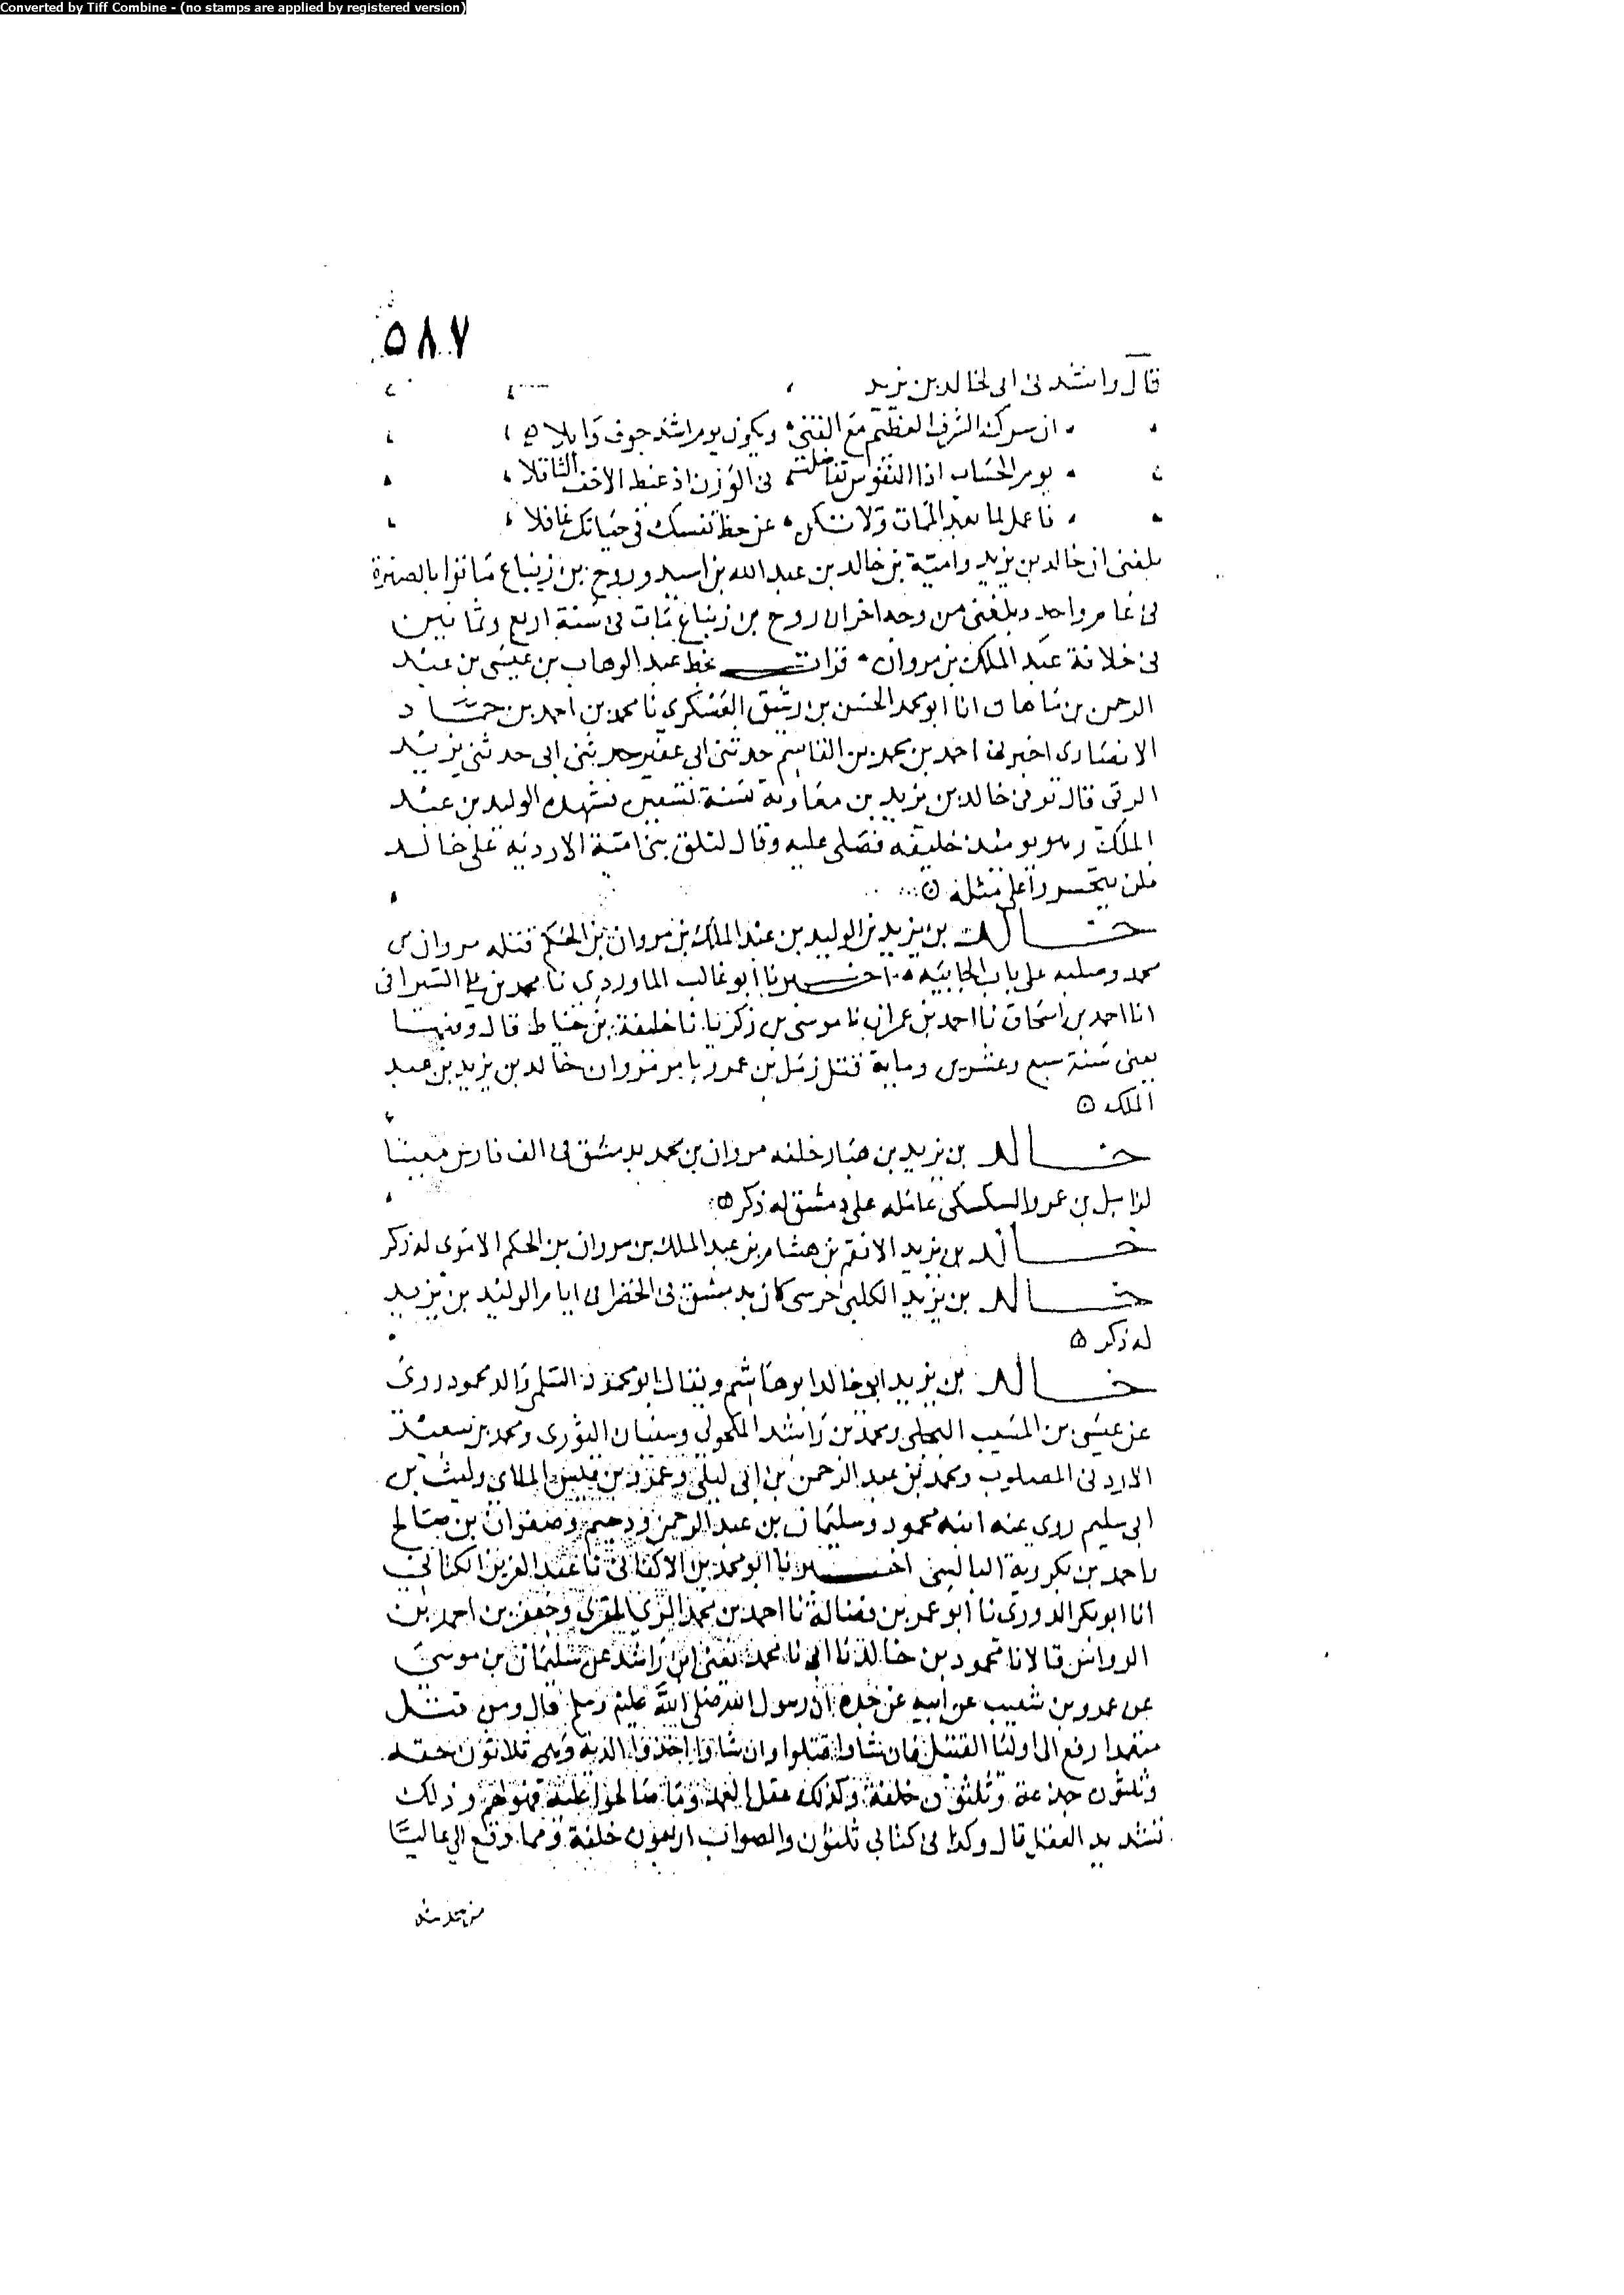 Converted by Tiff Combine - (no stamps are applied by registered version)
٥٨٧
قال وانشدنى ابى لخالد بن يزيد
ان سرك الشرف العظيم مع التقى ويكون يوم اشد خوف وايلا
يوم الحساب اذا النفوس تفاضلت فى الوزن اذ غبط الاخف الثاقلا
فاعمل لما بعد الممات ولا تكن عن حظ نفسك فى حياتك غافلا
بلغنى ان خالد بن يزيد وامية بن خالد بن عبد الله بن اسيد وروح بن زنباع ماتوا بالصنبرة
فى عام واحد وبلغنى من وجه اخر ان روح بن زنباع مات فى سنة اربع وثمانين
فى خلافة عبد الملك بن مروان قرات بخط عبد الوهاب بن عيسى بن عبد
الرحمن بن ماهان انا ابو محمد الحسن بن رشيق العسكرى نا محمد بن احمد بن حماد
الانصارى اخبرنى احمد بن محمد بن القاسم حدثنى ابى عفير حدثنى ابى حدثنى يزيد
الرقى قال توفى خالد بن يزيد بن معاوية سنة تسعين فشهده الوليد بن عبد
الملك وهو يومئذ خليفه فصلى عليه وقال لتلق بنى امية الاردية على خالد
فلن يتحسروا على مثله
خالد بن يزيد بن الوليد بن عبد الملك بن مروان بن الحكم قتله مروان بن
محمد وصلبه على باب الجابيه اخبرنا ابو غالب الماوردى نا محمد بن على السيرافى
انا احمد بن اسحاق نا احمد بن عمران نا موسى بن زكريا نا خليفة بن خياط قال وفيها
يعنى سنة سبع وعشرين وماية قتل زمل بن عمرو بامر مروان خالد بن يزيد بن عبد
الملك
خالد بن يزيد بن هبار خلفه مروان بن محمد بدمشق فى الف فارس معينا
لزامل بن عمرو السكسكى عامله على دمشق له ذكر
خالد بن يزيد الافقم بن هشام بن عبد الملك بن مروان بن الحكم الاموى له ذكر
خالد بن يزيد الكلبى حرسى كان بدمشق فى الخضرا فى ايام الوليد بن يزيد
له ذكر
خالد بن يزيد ابى خالد ابو هاشم ويقال ابو محمود السلمى والد محمود روى
عن عيسى بن المسيب البجلى ومحمد بن راشد المكحولى وسفيان الثورى ومحمد بن سعيد
الاردنى المصلوب ومحمد بن عبد الرحمن بن ابى ليلى وعمرو بن قيس الملاى وليث بن
ابى سليم روى عنه ابنه محمود وسليمان بن عبد الرحمن ودحيم وصفوان بن صالح
واحمد بن بكرويه البالسى اخبرنا ابو محمد بن الاكفانى نا عبد العزيز الكتانى
انا ابو بكر الدورى نا ابو عمر بن فضالة نا احمد بن محمد المقرى وجعفر بن احمد بن
الرواس قالا نا محمود بن خالد نا ابى نا محمد يعنى ابن راشد عن سليمان بن موسى
عن عمرو بن شعيب عن ابيه عن جده ان رسول الله صلى الله عليه وسلم قال ومن قتل
متعمدا رفع الى اوليا القتيل فان شاوا قتلوا وان شاوا اخذوا الدية وهى ثلاثون حقه
وثلثون جذعة وثلثون خلفة وكذلك عقل العمد وما صالحوا عليه فهو لهم وذلك
تشديد العقل قال وكذا فى كتابى ثلثون والصواب اربعون خلفة ومما وقع الى عاليا
من حديثه